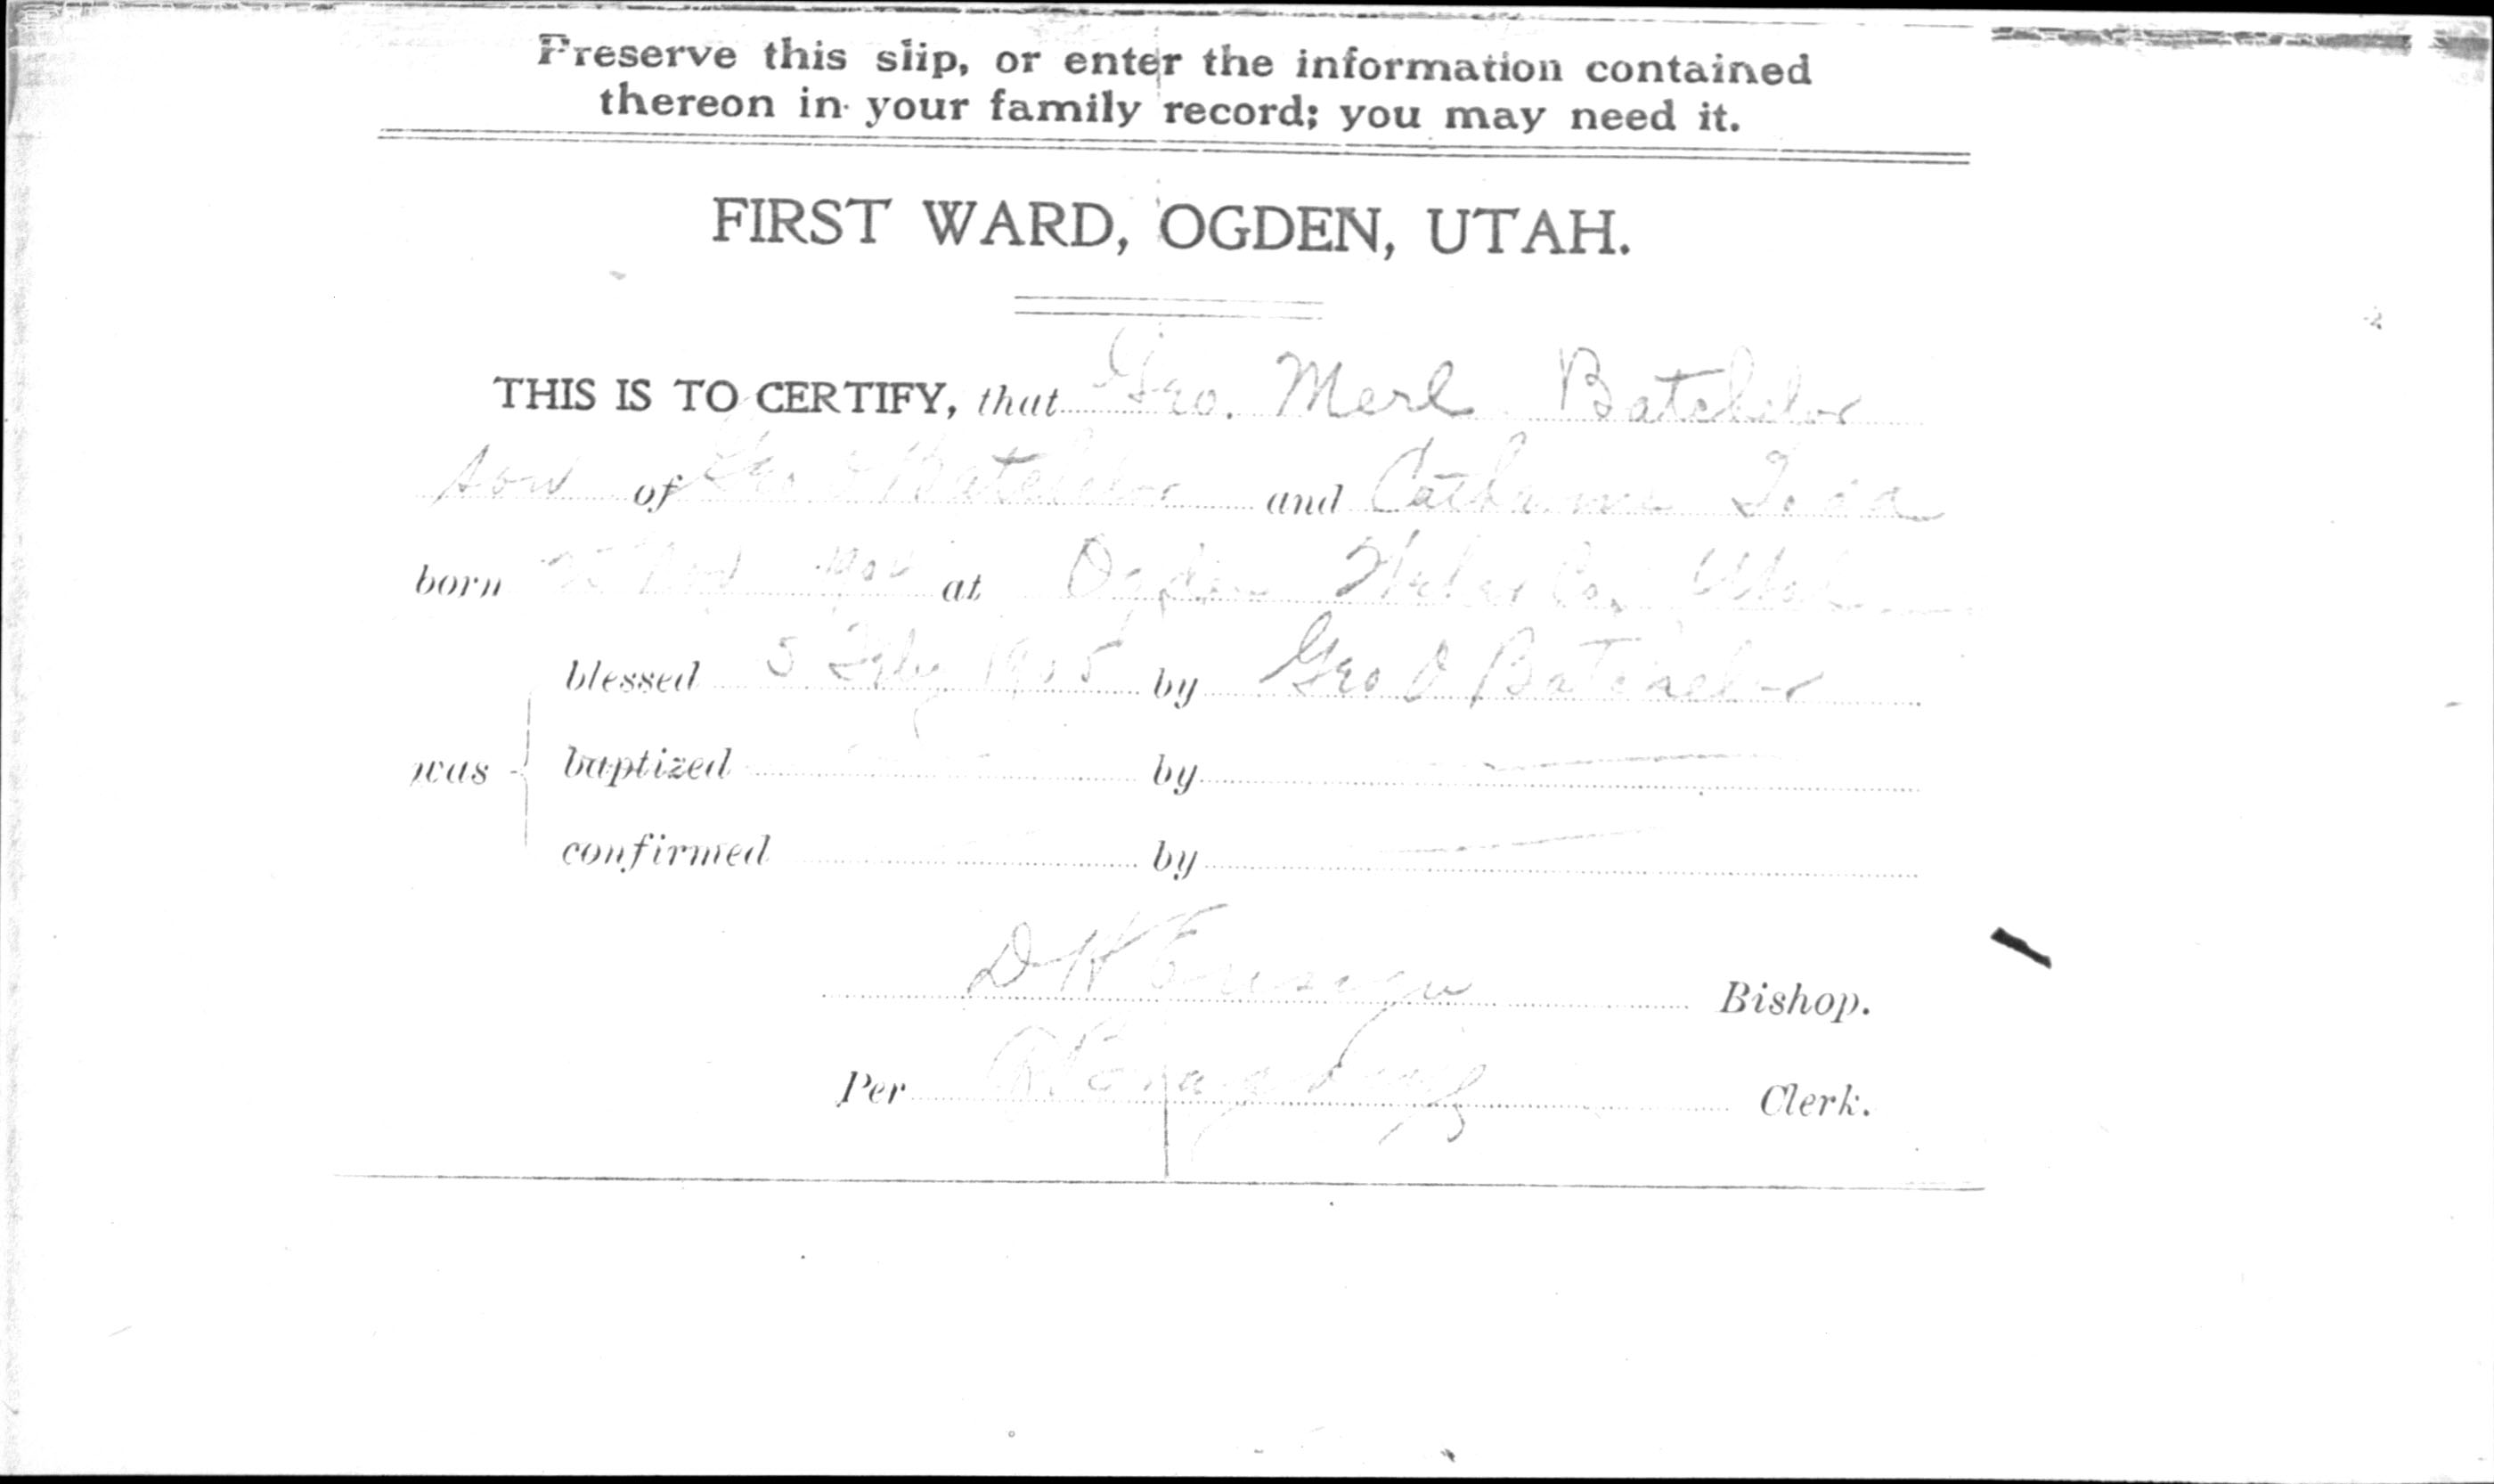 Preserve this slip, or enter the information contained
thereon in your family record; you may need it.
FIRST WARD, OGDEN, UTAH.
THIS IS TO CERTIFY, that Geo. Merl Batchelor
son of Geo Batchelor and Catherine Todd
born at Ogden Weber Co. Utah
blessed 5 Feby 1905 by Geo O Batchelor
was baptized by
confirmed by
D H Ensign Bishop.
Per Clerk.